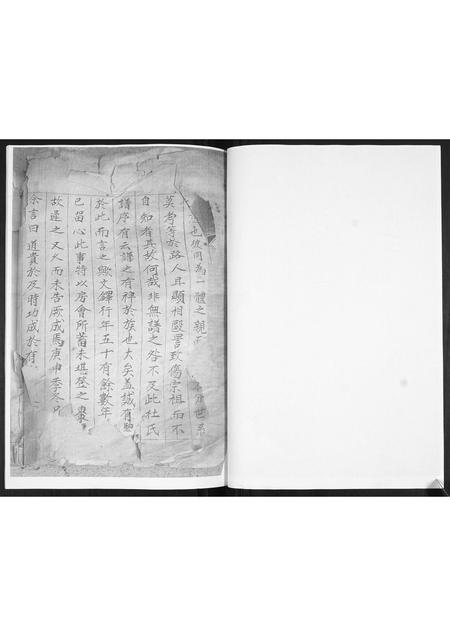 也彼同為一體之親
莫考等於路人耳顯相毆詈致傷宗祖而不
自知者其故何哉非無譜之咎不及此杜氏
譜序有云譜之有裨於族也大矣盖誠有
於此而言之與文鐸行年五十有餘數年
已留心此事特以房會所蓄未堪登之棗
故遲之又久而未告厥成焉庚申季冬
余言曰道貴於及時功成於有